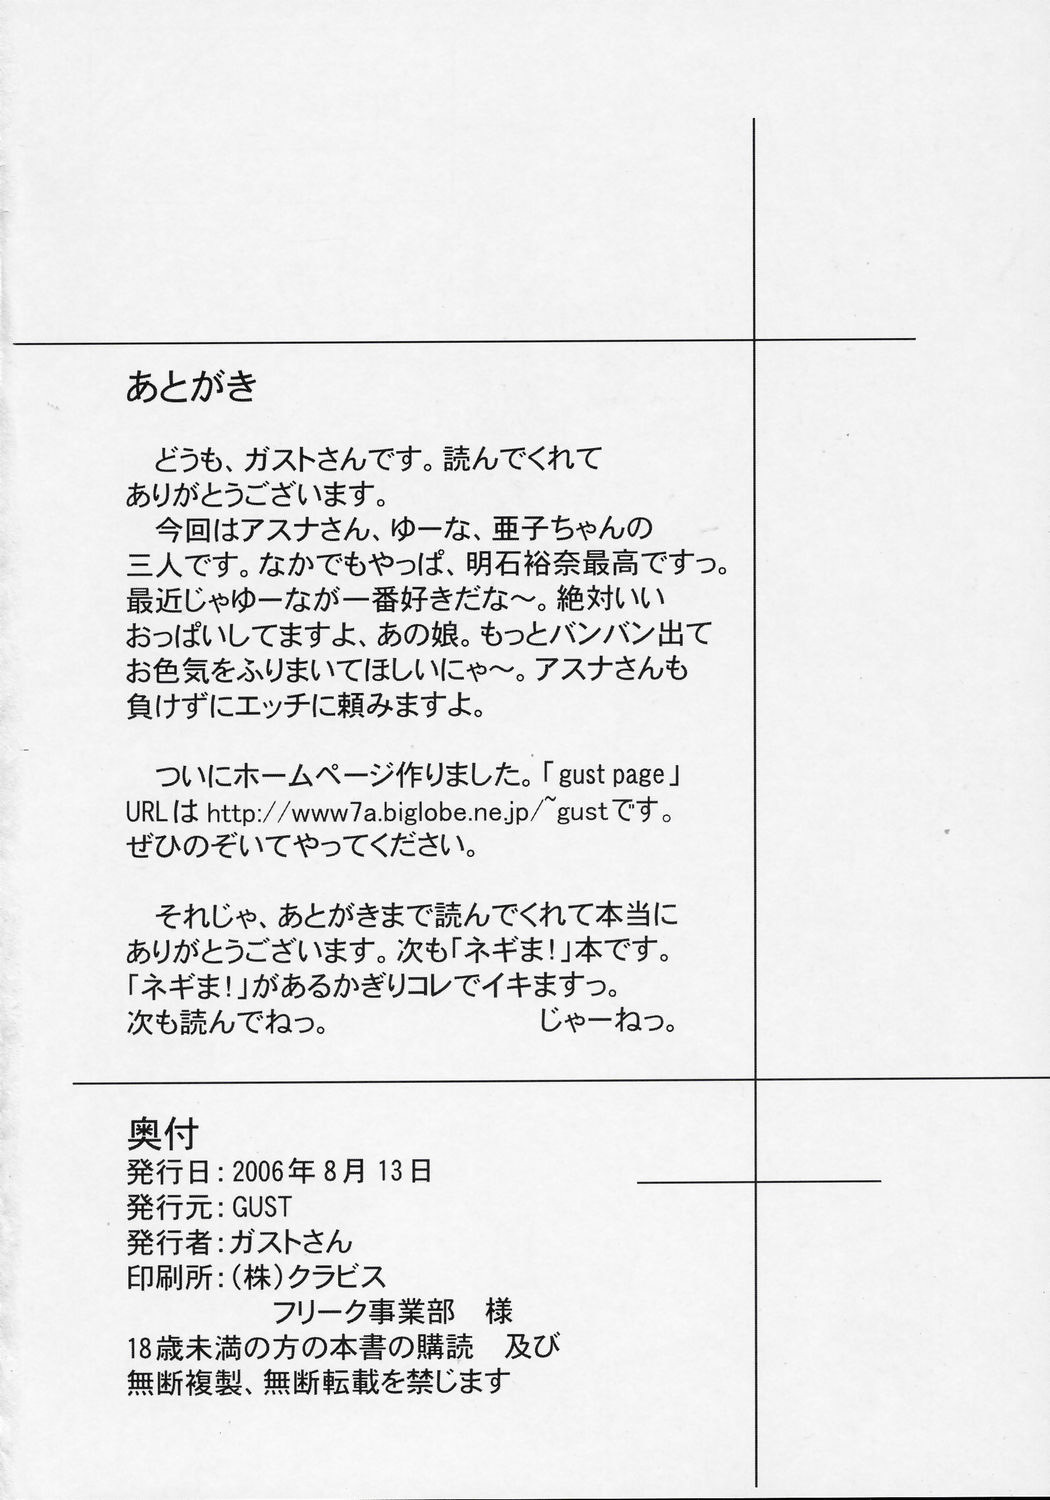 あとがき
どうも、ガストさんです。読んでくれて
ありがとうございます。
今回はアスナさん、ゆーな、亜子ちゃんの
三人です。なかでもやっぱ、明石裕奈最高ですっ。
最近じゃゆーなが一番好きだな～。絶対いい
おっぱいしてますよ、あの娘。もっとバンバン出て
お色気をふりまいてほしいにゃ～。アスナさんも
負けずにエッチに頼みますよ。
ついにホームページ作りました。「gust page」
URLは http://www7a.biglobe.ne.jp/~gustです。
ぜひのぞいてやってください。
それじゃ、あとがきまで読んでくれて本当に
ありがとうございます。次も「ネギま!」本です。
「ネギま!」があるかぎりコレでイキますっ。
次も読んでねっ。　　　　　　　じゃーねっ。
奥付
発行日：2006年8月13日
発行元：GUST
発行者：ガストさん
印刷所：（株）クラビス
フリーク事業部　様
18歳未満の方の本書の購読　及び
無断複製、無断転載を禁じます